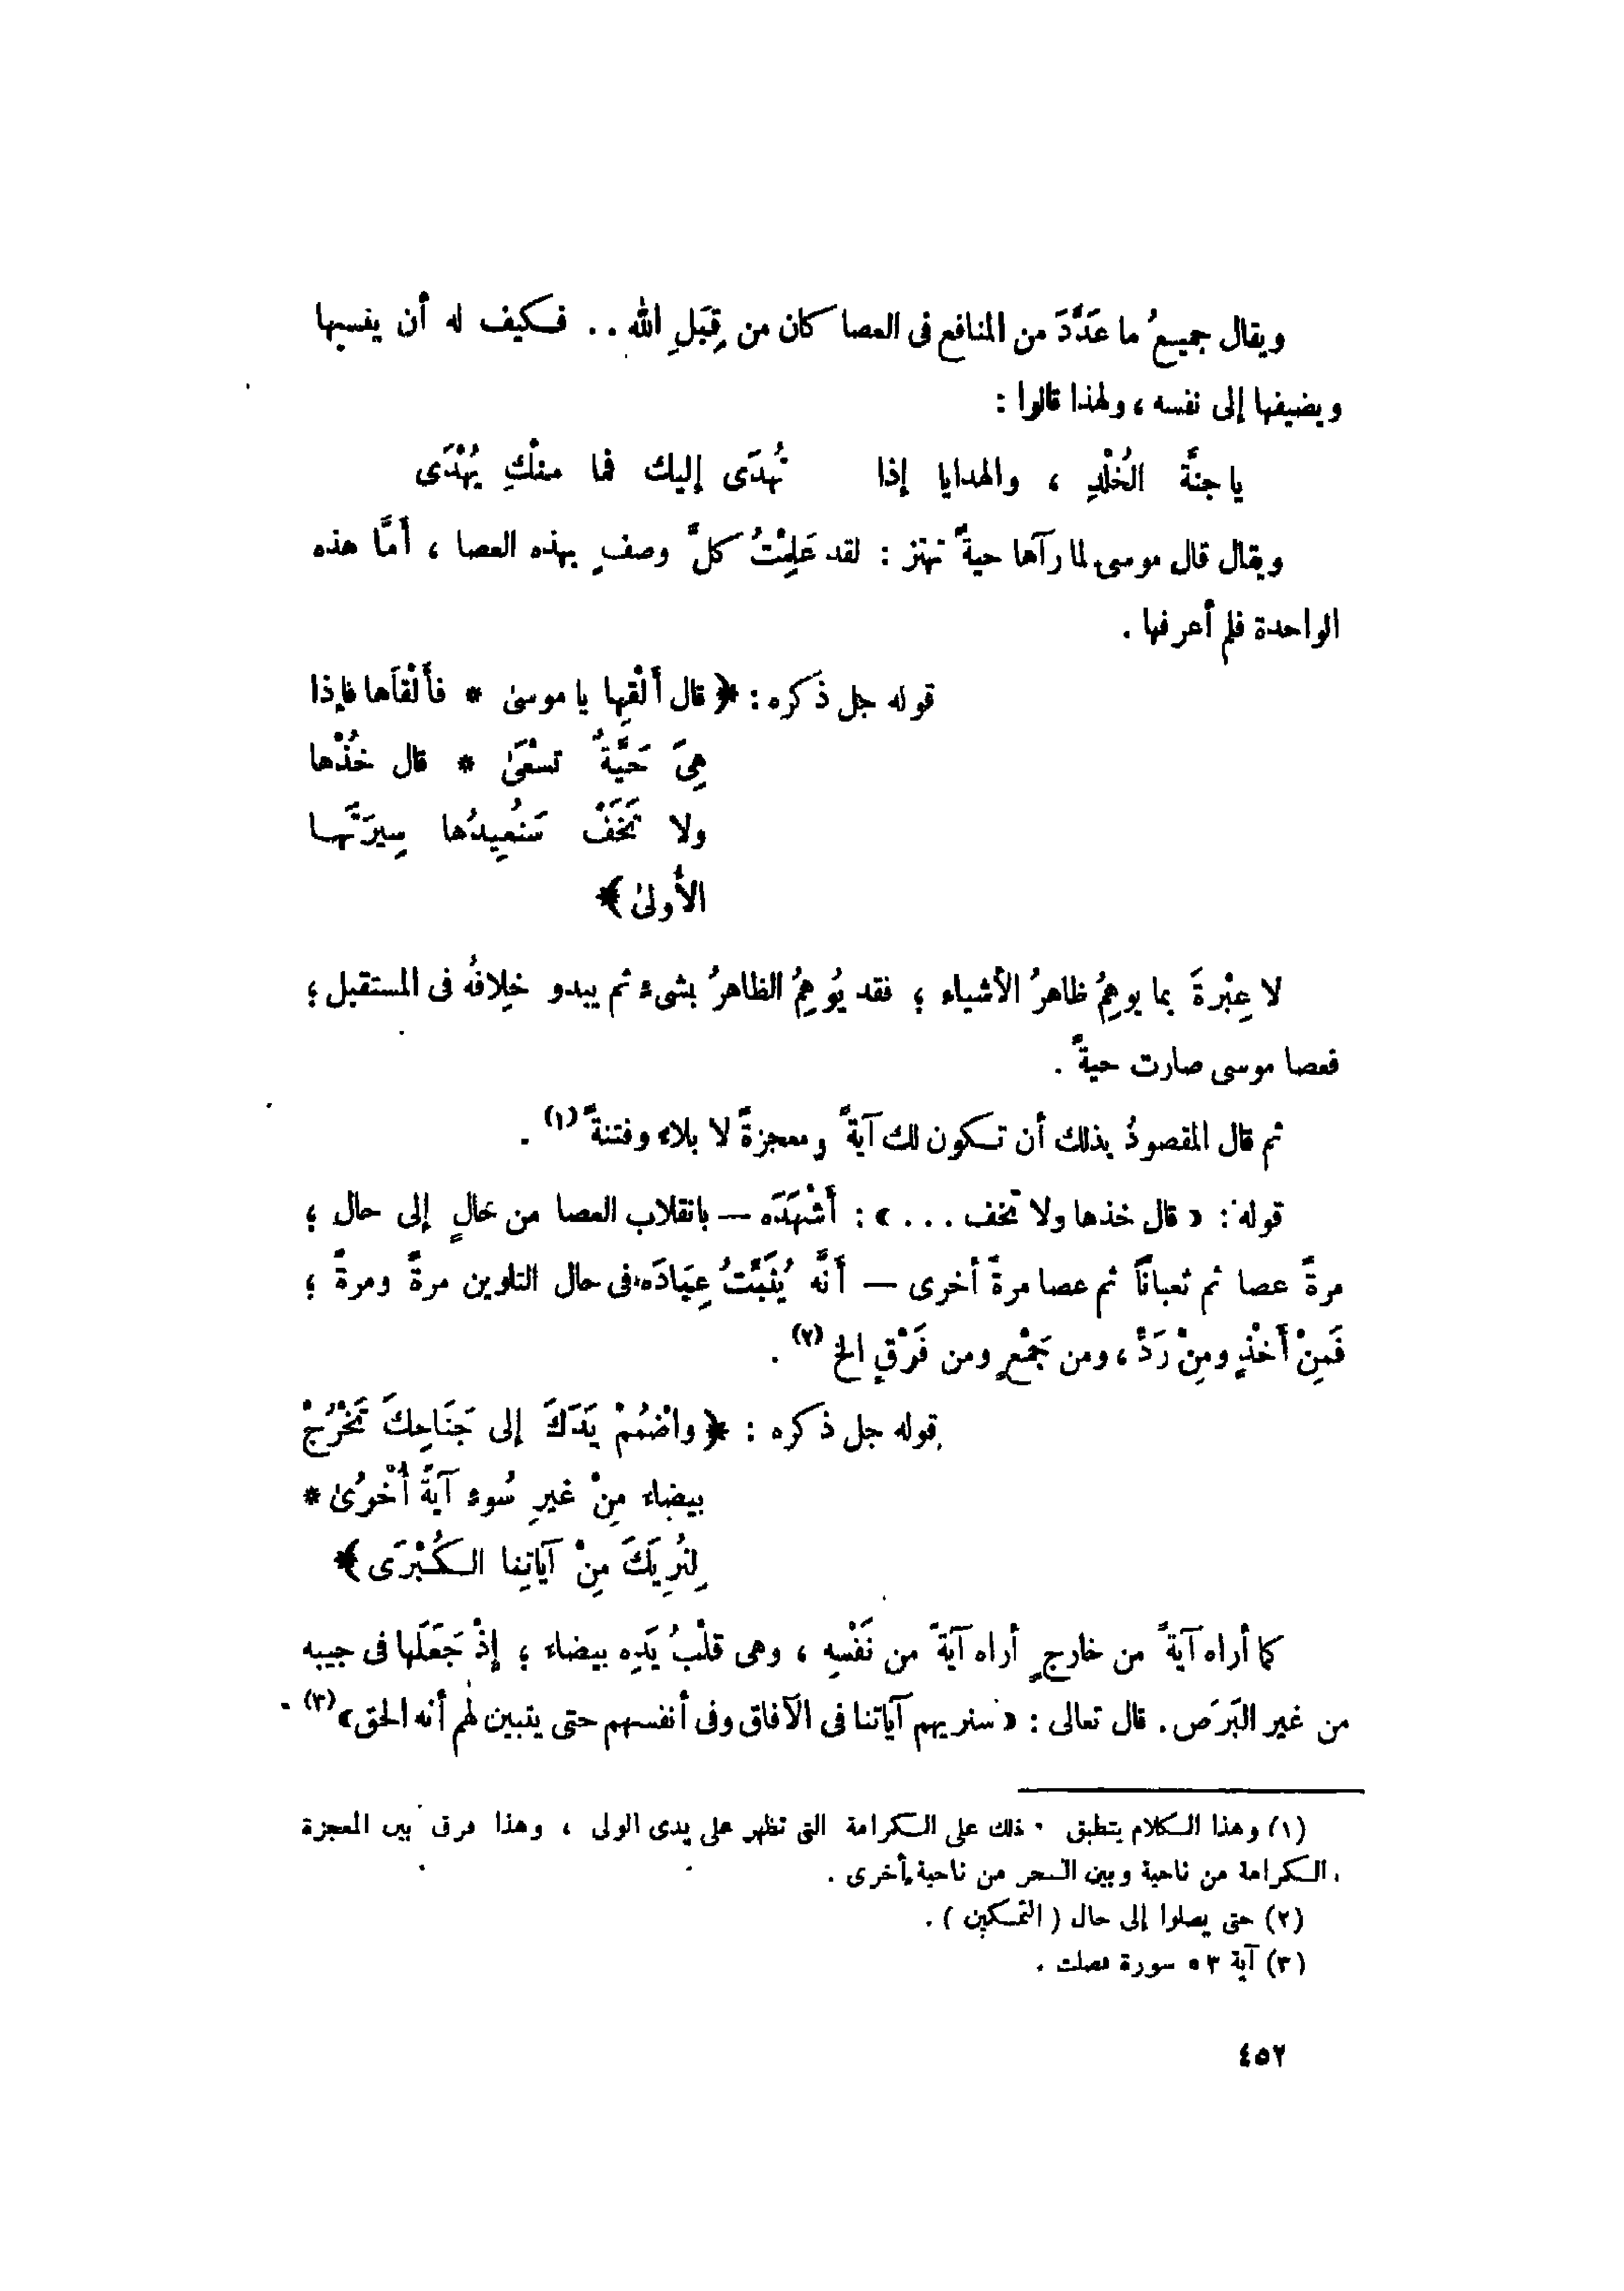 ويقال جميعُ ما عَدَّدَ من المنافع فى العصا كان من قِبَلِ الله .. فكيف له أن ينسبها
ويضيفها إلى نفسه ، ولهذا قالوا :
يا جنَّة الخُلْدِ ، والهدايا إذا تُهدَى إليك فما منْكِ يُهْدَى
ويقال قال موسى لما رآها حيةً تهتز : لقد عَلِمْتُ كلَّ وصفٍ بهذه العصا ، أمَّا هذه
الواحدة فلم أعرفها .
قوله جل ذكره : ﴿ قال أَلْقِها يا موسىٰ * فأَلْقَاَها فإذا
هِىَ حَيَّةٌ تسْعَىٰ * قال خُذْها
ولا تَخَفْ سَنُعِيدُها سِيرَتَها
الأُولىٰ ﴾
لا عِبْرةَ بما يوهِمُ ظاهرُ الأشياء ؛ فقد يُوهِمُ الظاهرُ بشىء ثم يبدو خِلافُه فى المستقبل ؛
فعصا موسى صارت حيةً .
ثم قال المقصودُ بذلك أن تكون لك آيةً ومعجزةً لا بلاء وفتنةً (١) .
قوله : « قال خذها ولا تخف ... » : أَشْهَدَه — بانقلاب العصا من حَالٍ إلى حال ؛
مرةً عصا ثم ثعباناً ثم عصا مرةً أخرى — أَنَّه يُثَبِّتُ عِبَادَه فى حال التلوين مرةً ومرةً ؛
فَمِنْ أَخْذٍ ومِنْ رَدٍّ ، ومن جَمْعٍ ومن فَرْقٍ الخ (٢) .
قوله جل ذكره : ﴿ واضْمُمْ يَدَكَ إلى جَنَاحِكَ تَخْرُجْ
بيضاء مِنْ غيرِ سُوء آيةً أُخْرىٰ *
لِنُرِيَكَ مِنْ آيَاتِنا الكُبْرَى ﴾
كما أراه آيةً من خارجٍ أراه آيةً من نَفْسِه ، وهى قلْبُ يَدِه بيضاء ؛ إِذْ جَعَلَها فى جيبه
من غير البَرَص . قال تعالى : « سنريهم آياتنا فى الآفاق وفى أنفسهم حتى يتبين لهم أنه الحق » (٣) .
(١) وهذا الكلام ينطبق ذلك على الكرامة التى تظهر على يدى الولى ، وهذا فرق بين المعجزة
الكرامة من ناحية وبين السحر من ناحية أخرى .
(٢) حتى يصلوا إلى حال ( التمكين ) .
(٣) آية ٥٣ سورة فصلت .
٤٥٢